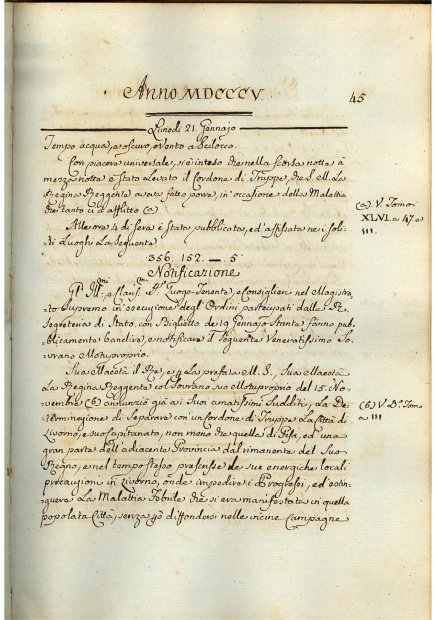 Anno MDCCCV.
45
Lunedì 21. Gennajo
Tempo acqua, e oscuro, e Vento a Scilocco.
Con piacere universale, si è inteso che nella scorsa notte à
mezza notte è stato Levato il Cordone di Truppe, che S. M. La
Regina Reggente aveva fatto porre, in occasione della Malattia
che tanto ci à afflitto (a)
(a) V. Tomo
XLVI. a 47 a
111.
Alle ore 4 di sera è stata pubblicata, ed affissata ne i soli-
ti Luoghi La Seguente
356 152. — 5
Notificazione
Gl' Ill.mi e Sig.ri Luogo-Tenente, e Consiglieri nel Magistra-
to Supremo in esecuzione degl' Ordini partecipati dalla R.
Segreteria di Stato, con Biglietto de 19 Gennajo Stante fanno pub-
blicamente bandire, e notificare il seguente Veneratissimo So-
vrano Motuproprio.
Sua Maestà il Re, e p la prefata M. S., Sua Maestà
La Regina Reggente col Sovrano suo Motuproprio del 15. No-
vembre (b) annunziò già ai Suoi amatissimi Sudditi, La De-
terminazione di Separare con un Cordone di Truppe La Città di
Livorno, e suo Capitanato, non meno che quella di Pisa, ed una
gran parte dell' adiacente Provincia dal rimanente del Suo
Regno, e nel tempo stesso prescrisse le sue energiche locali
precauzioni in Livorno, onde impedire i Progressi, ed estin-
guere La Malattia Febrile che si era manifestata in quella
popolata Città, senza però diffondersi nelle vicine Campagne
(b) V. D.o Tomo
a 111